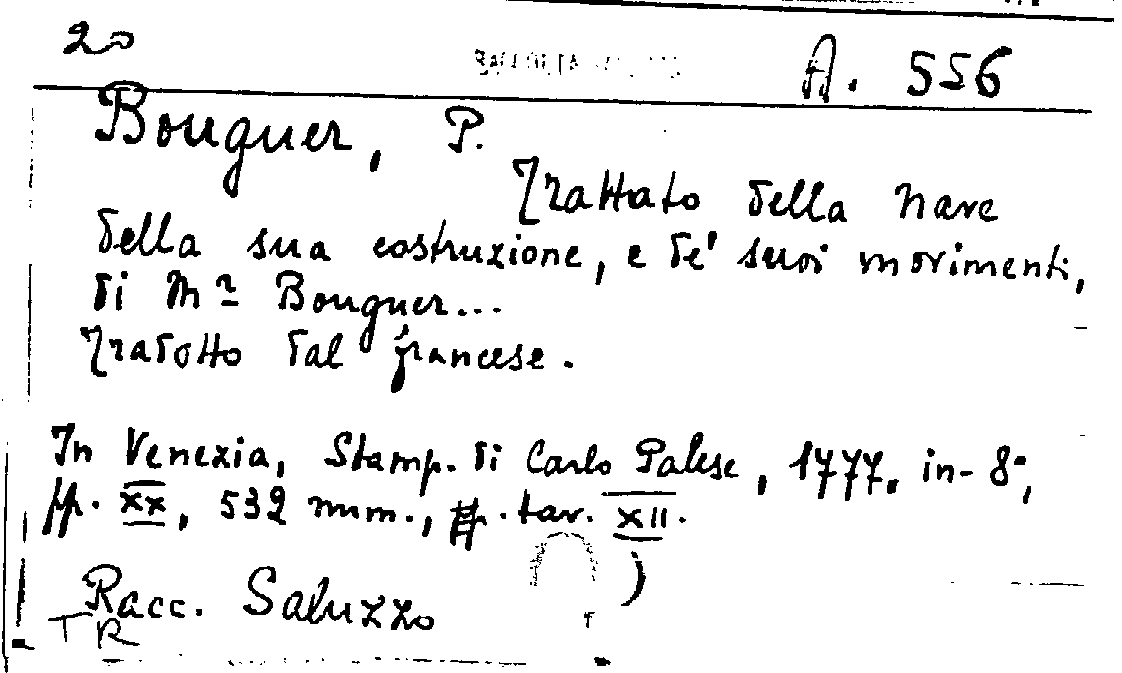 20 RACCOLTA A. 556
Bouguer, P.
Trattato della nave
della sua costruzione, e de' suoi movimenti,
di Mr Bouguer...
Tradotto dal francese.
In Venezia, Stamp. di Carlo Palese, 1777. in-8°,
pp. XX, 532 num., tav. XII.
Racc. Saluzzo
TR